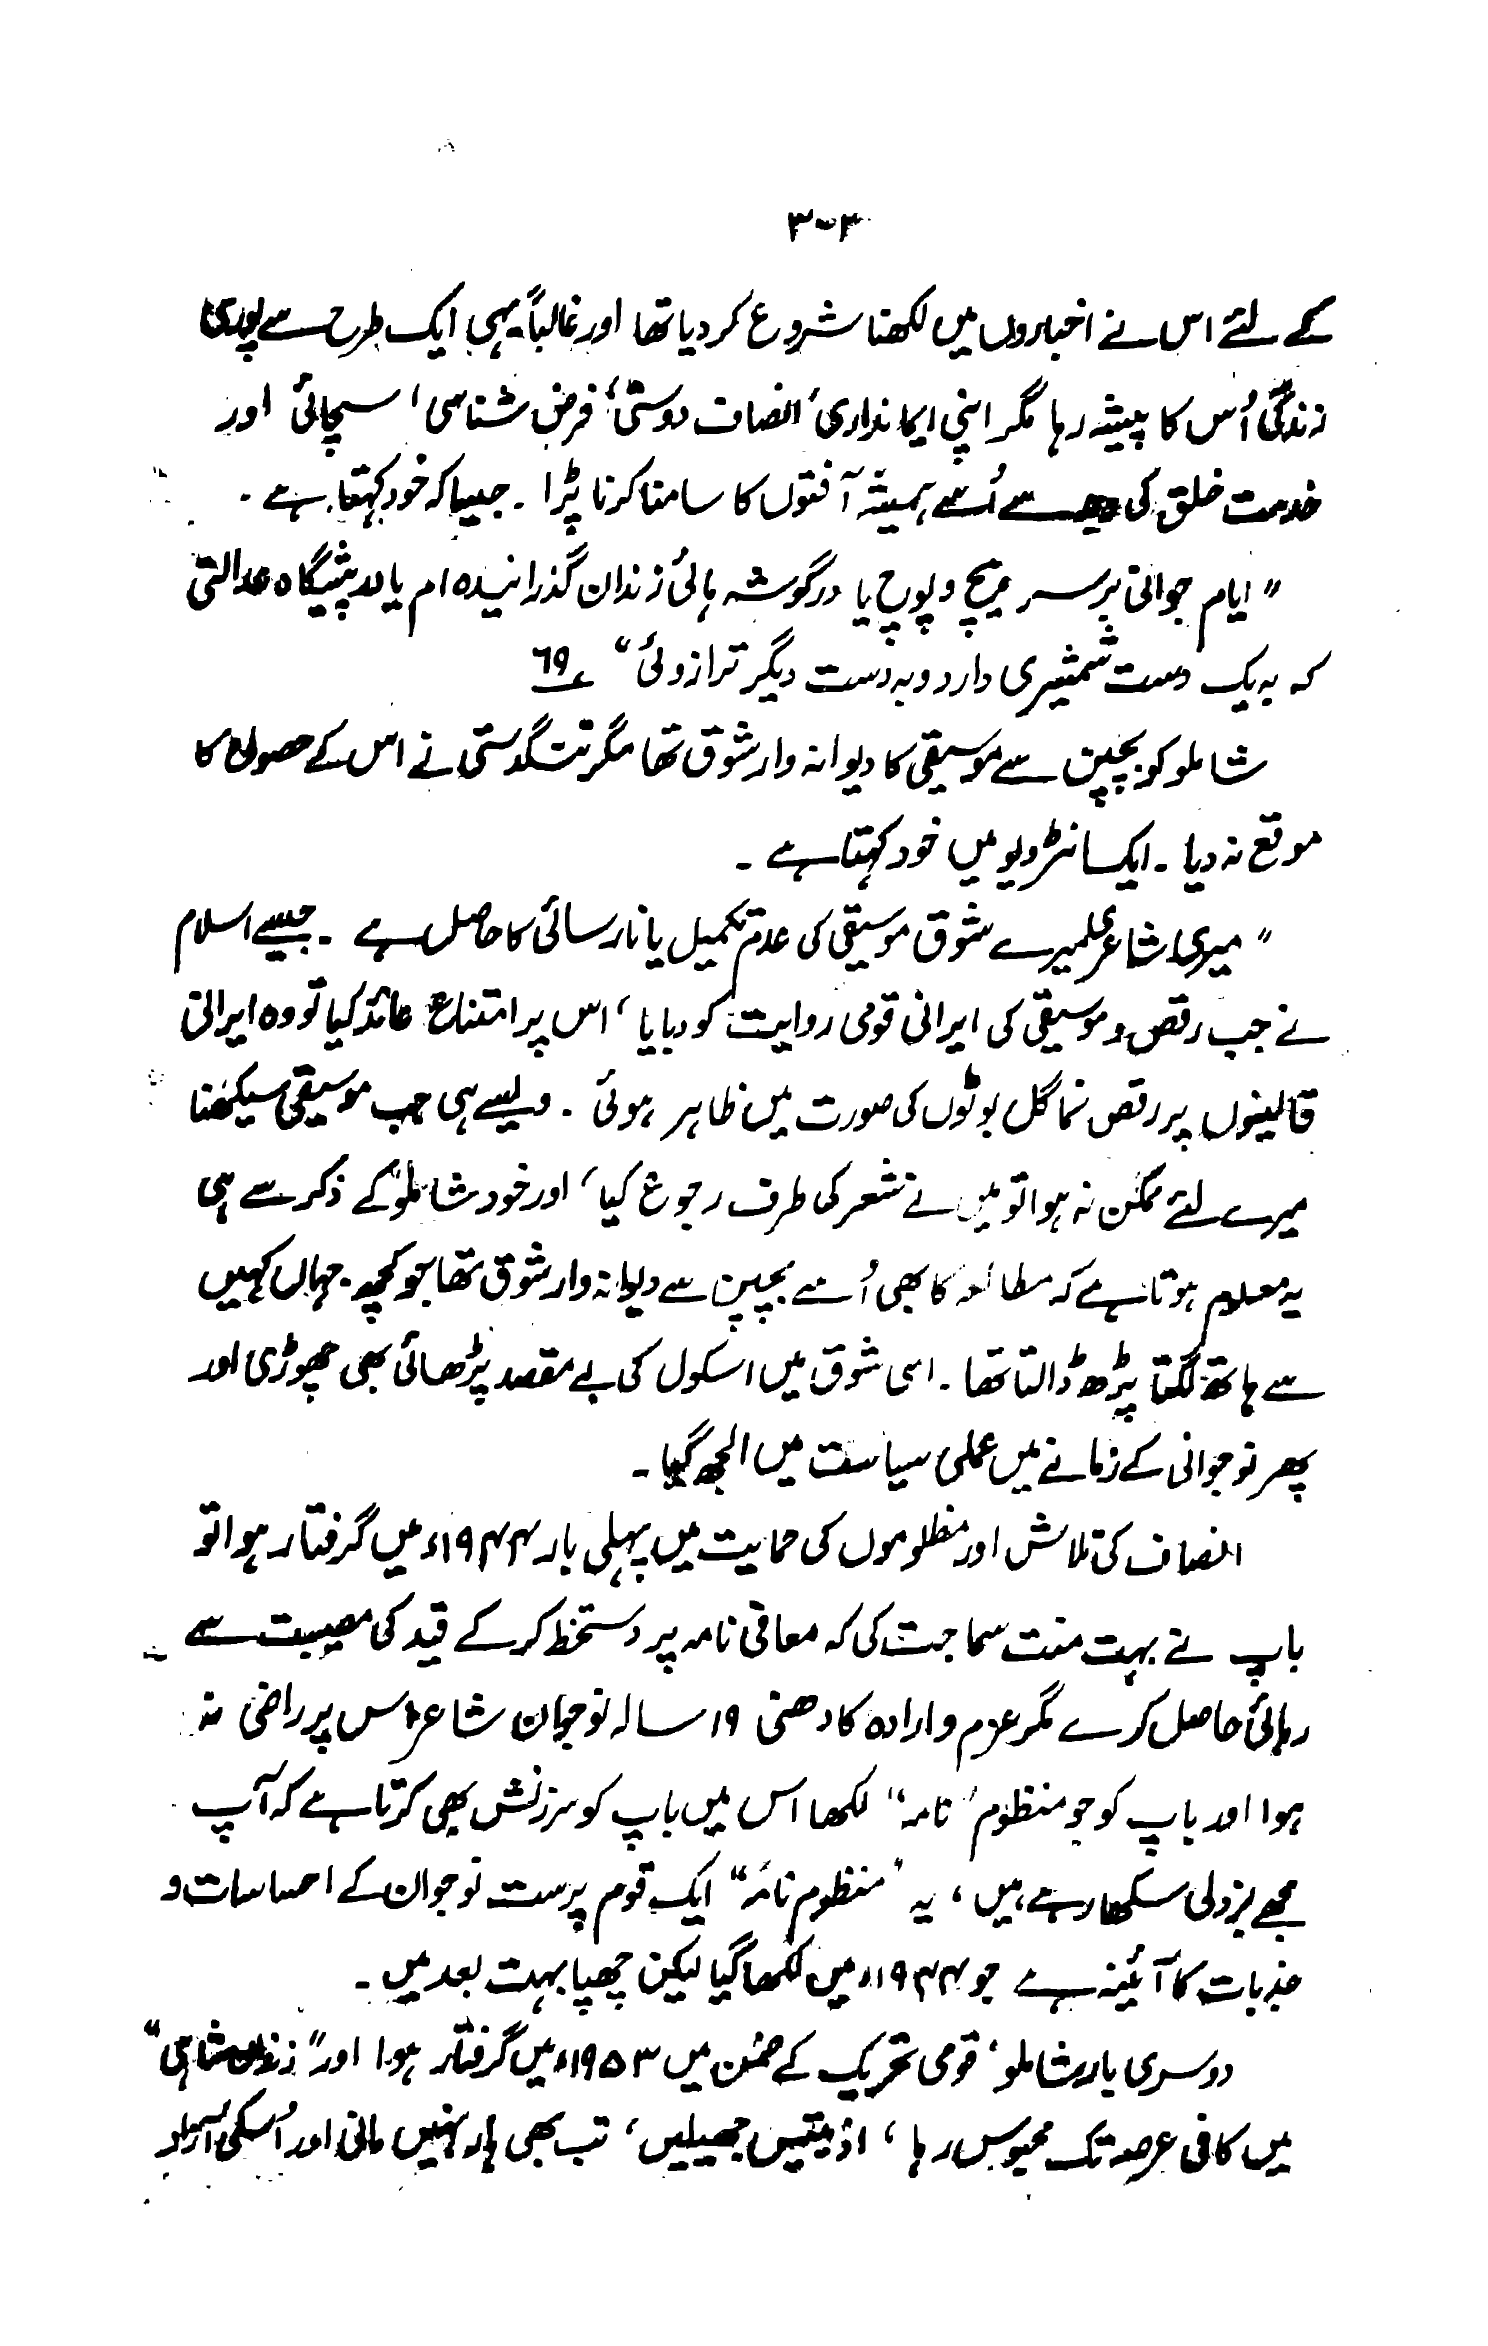 ۳۰۳
کے لئے اس نے اخباروں میں لکھنا شروع کر دیا تھا اور غالباً یہی ایک طرح سے پوری
زندگی اُس کا پیشہ رہا مگر اپنی ایمانداری، انصاف دوستی، فرض شناسی، سچائی اور
خدمت خلق کی وجہ سے اُسے ہمیشہ آفتوں کا سامنا کرنا پڑا ۔ جیسا کہ خود کہتا ہے ۔
" ایام جوانی بر سر ہیچ و پوچ یا در گوشہ ہائی زندان گذرانیدہ ام یا در پیشگاہ عدالتی
کہ بہ یک دست شمشیری دارد و بہ دست دیگر ترازوئی" ۶۹؎
شاملو کو بچپن سے موسیقی کا دیوانہ وار شوق تھا مگر تنگدستی نے اس کے حصول کا
موقع نہ دیا ۔ ایک انٹرویو میں خود کہتا ہے ۔
" میری شاعری میرے شوق موسیقی کی عدم تکمیل یا نارسائی کا حاصل ہے ۔ جیسے اسلام
نے جب رقص و موسیقی کی ایرانی قومی روایت کو دبایا، اس پر امتناع عائد کیا تو وہ ایرانی
قالینوں پر رقص نما گل بوٹوں کی صورت میں ظاہر ہوئی ۔ ویسے ہی جب موسیقی سیکھنا
میرے لئے ممکن نہ ہوا تو میں نے شعر کی طرف رجوع کیا، اور خود شاملو کے ذکر سے ہی
یہ معلوم ہوتا ہے کہ مطالعہ کا بھی اُسے بچپن سے دیوانہ وار شوق تھا جو کچھ ۔ جہاں کہیں
سے ہاتھ لگتا پڑھ ڈالتا تھا ۔ اسی شوق میں اسکول کی بے مقصد پڑھائی بھی چھوڑی اور
پھر نوجوانی کے زمانے میں عملی سیاست میں الجھ گیا ۔
انصاف کی تلاش اور مظلوموں کی حمایت میں پہلی بار ۱۹۴۴ء میں گرفتار ہوا تو
باپ نے بہت منت سماجت کی کہ معافی نامہ پر دستخط کر کے قید کی مصیبت سے
رہائی حاصل کرے مگر عزم و ارادہ کا دھنی ۱۹ سالہ نوجوان شاعر اس پر راضی نہ
ہوا اور باپ کو جو منظوم "نامہ" لکھا اس میں باپ کو سرزنش بھی کرتا ہے کہ آپ
مجھے بزدلی سکھا رہے ہیں، یہ "منظوم نامہ" ایک قوم پرست نوجوان کے احساسات و
جذبات کا آئینہ ہے جو ۱۹۴۴ء میں لکھا گیا لیکن چھپا بہت بعد میں ۔
دوسری بار شاملو، قومی تحریک کے ضمن میں ۱۹۵۳ء میں گرفتار ہوا اور "زندان شاہی"
میں کافی عرصہ تک محبوس رہا، اذیتیں جھیلیں، تب بھی ہار نہیں مانی اور اُسکی